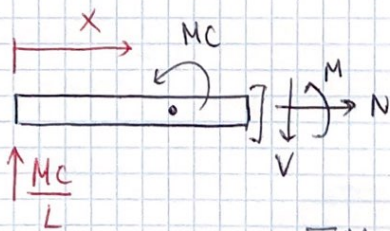 X
MC
M
N
V
MC
L